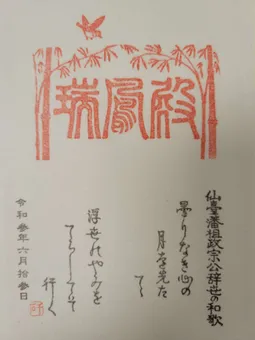 瑞鳳殿
仙臺藩祖政宗公辞世の和歌
曇りなき心の
月を先た
てゝ
浮世のやみを
てらしてそ
行く
令和參年六月拾參日